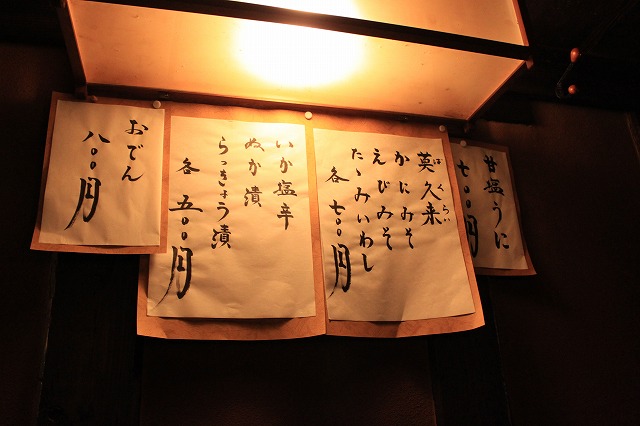 甘塩うに
七〇〇円
莫久来
ばくらい
かにみそ
えびみそ
たゝみいわし
各七〇〇円
いか塩辛
ぬか漬
らっきょう漬
各五〇〇円
おでん
八〇〇円